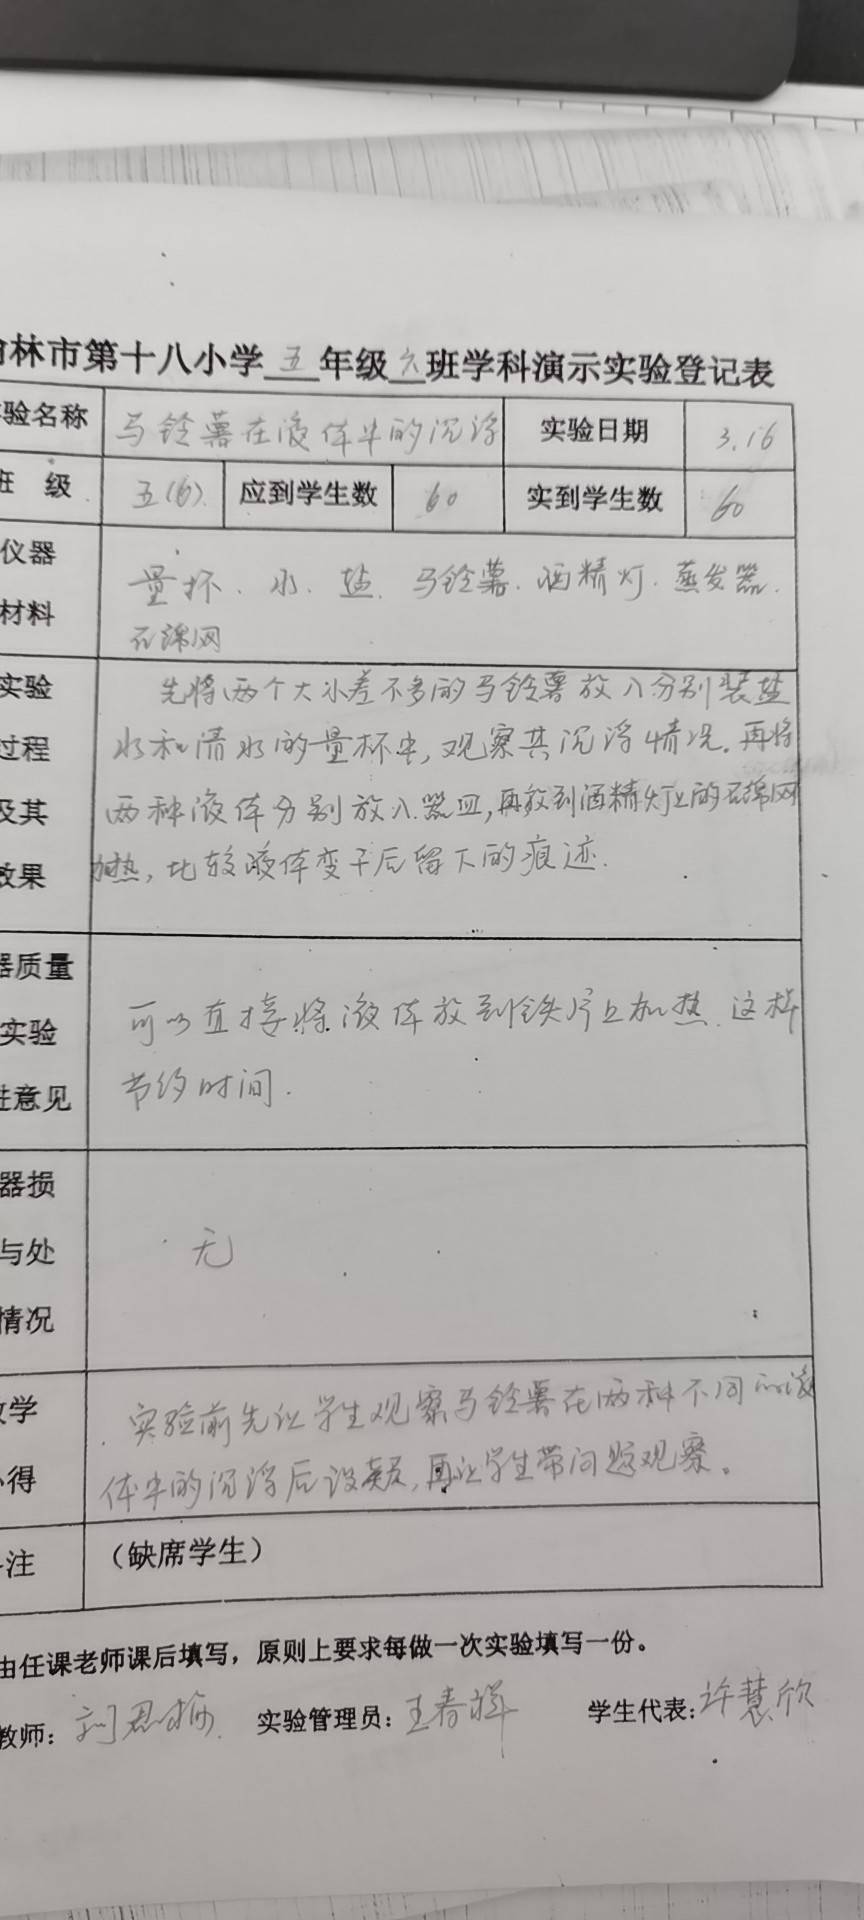 林市第十八小学 五 年级 六 班学科演示实验登记表
验名称 马铃薯在液体中的沉浮 实验日期 3.16
级 五(6) 应到学生数 60 实到学生数 60
仪器
材料
量杯、水、盐、马铃薯、酒精灯、蒸发器、
石绵网
实验
过程
及其
效果
先将两个大小差不多的马铃薯放入分别装盐
水和清水的量杯中,观察其沉浮情况.再将
两种液体分别放入器皿,再放到酒精灯上的石绵网
加热,比较液体变干后留下的痕迹.
器质量
实验
进意见
可以直接将液体放到铁片上加热.这样
节约时间.
器损
与处
情况
无
教学
心得
实验前先让学生观察马铃薯在两种不同的液
体中的沉浮后设疑,再让学生带问题观察。
注 （缺席学生）
由任课老师课后填写，原则上要求每做一次实验填写一份。
教师: 实验管理员: 王春祥 学生代表: 许慧欣